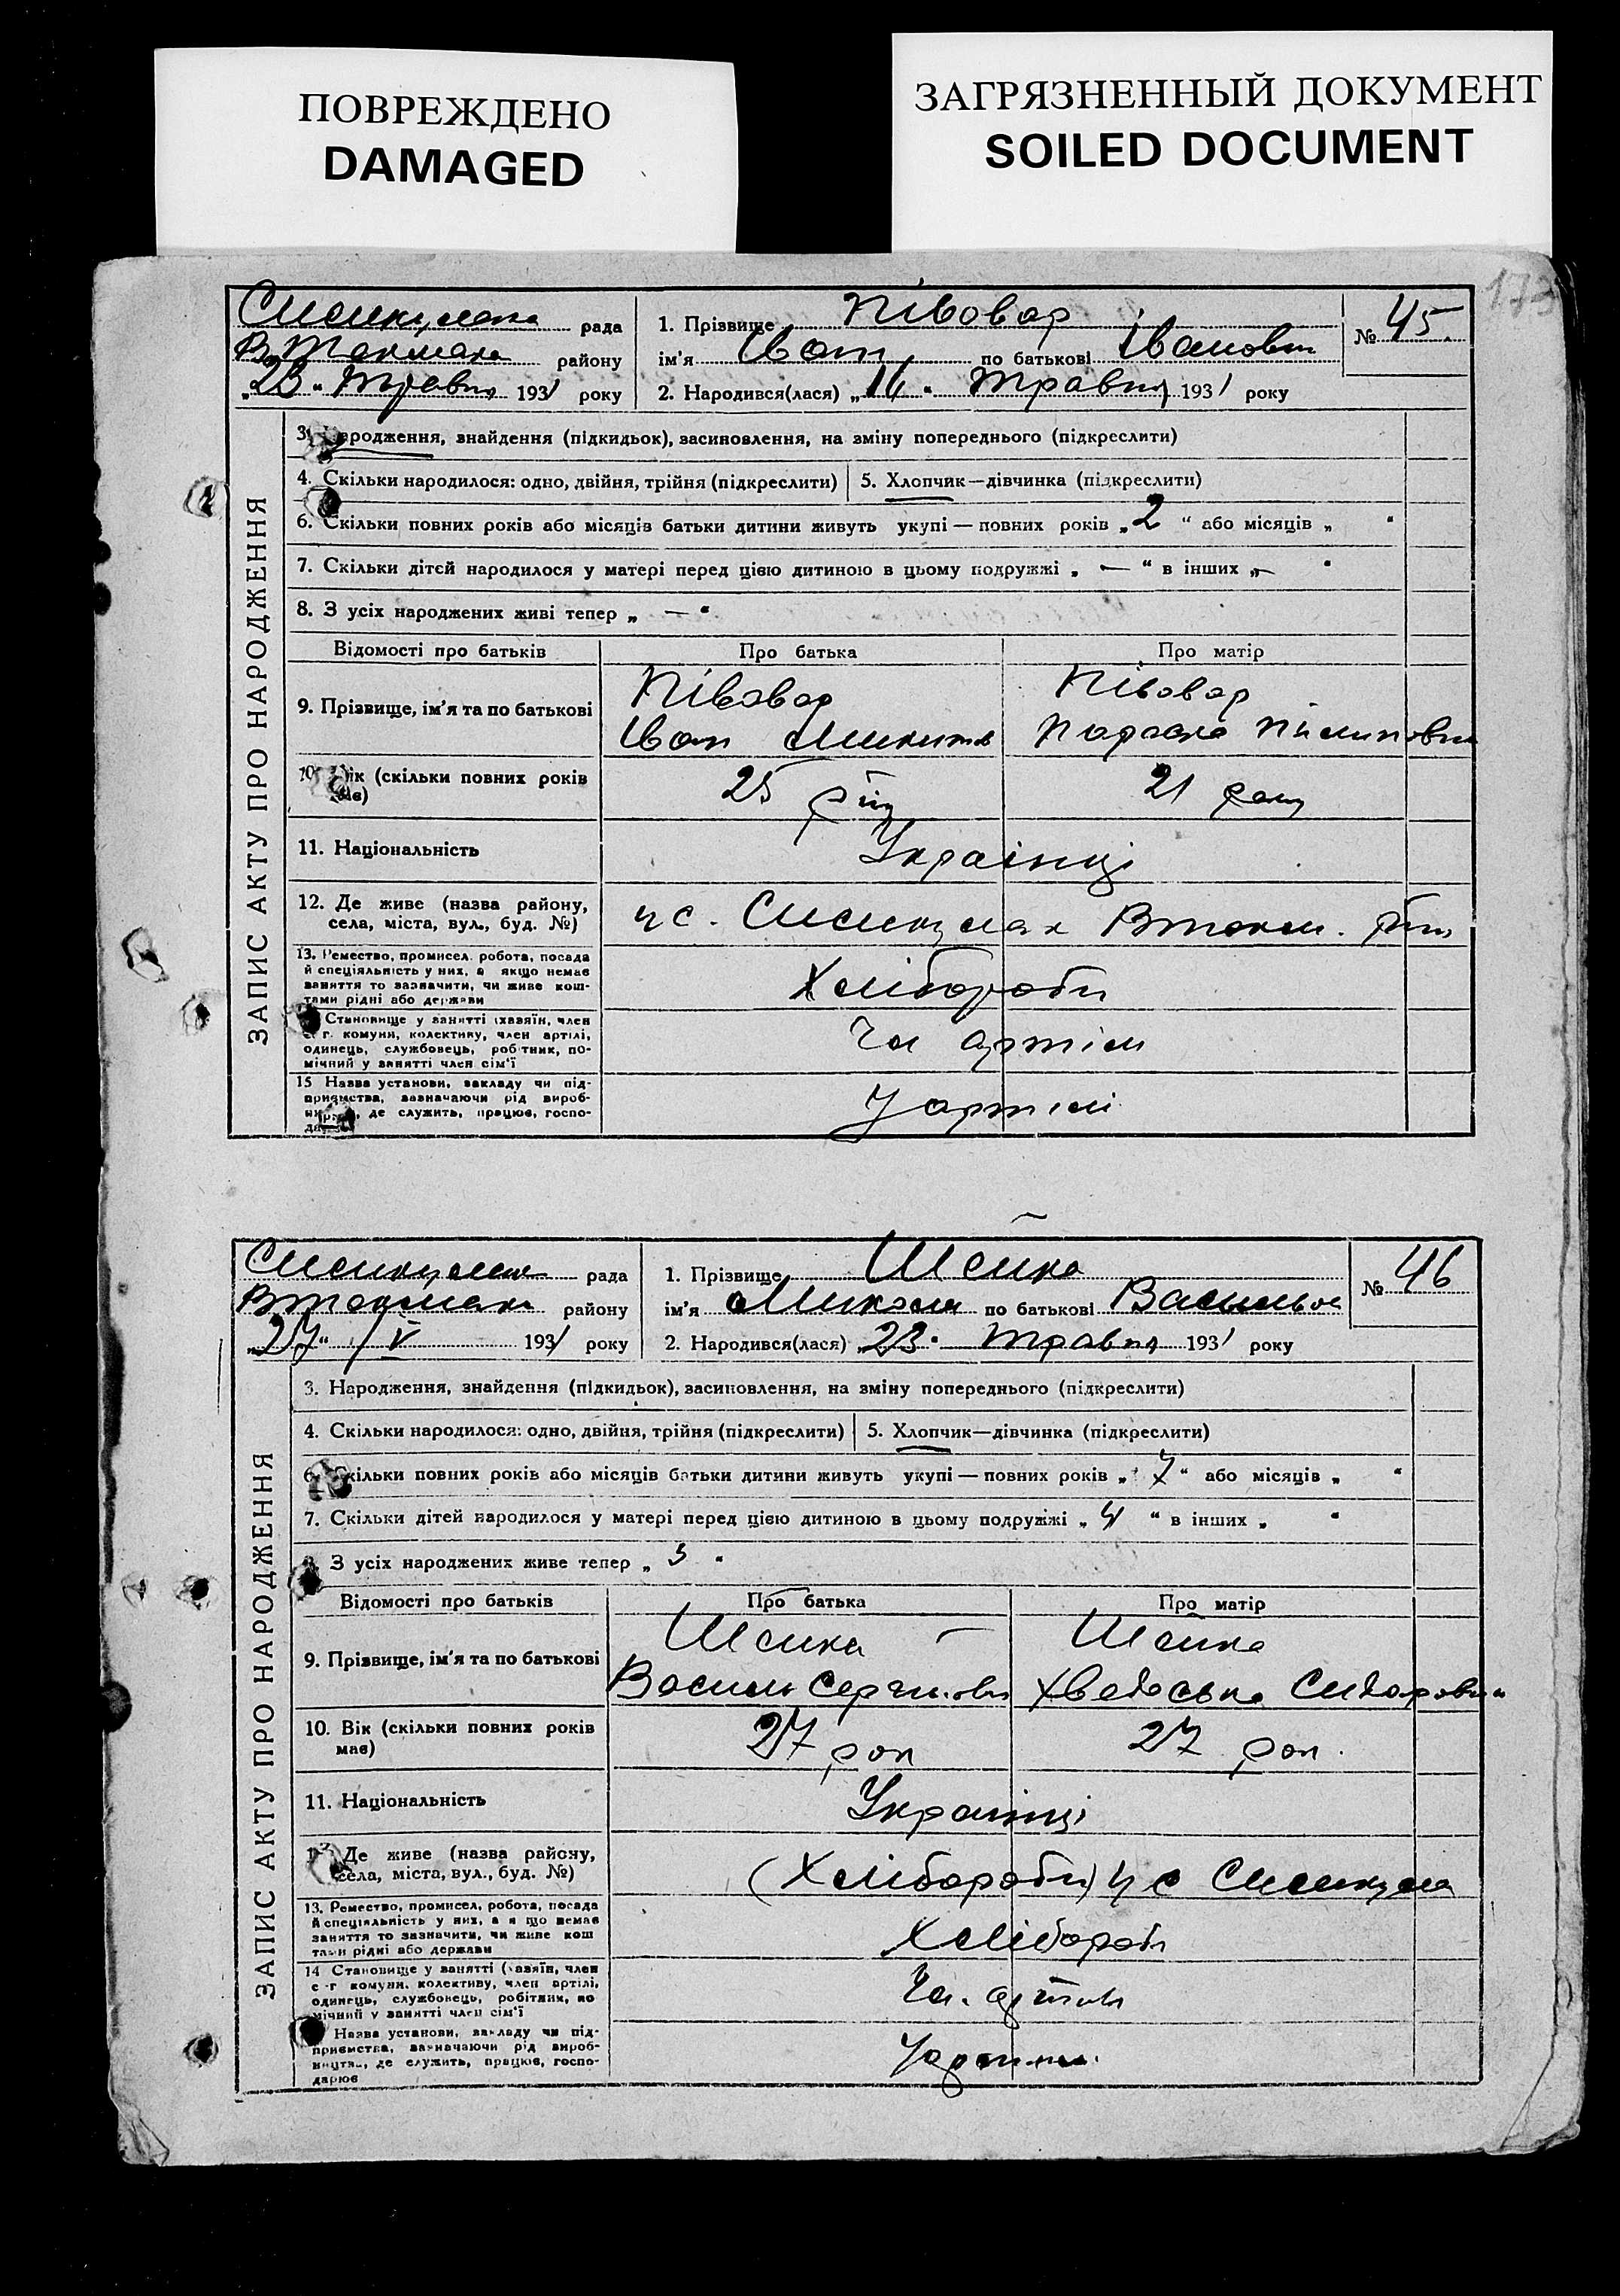 ПОВРЕЖДЕНО
DAMAGED
ЗАГРЯЗНЕННЫЙ ДОКУМЕНТ
SOILED DOCUMENT
173
рада
району
„23“ Травня 1931 року
1. Прізвище Півовар
ім'я Іван по батькові Іванович
2. Народився(лася) „16“ Травня 1931 року
№ 45.
ЗАПИС АКТУ ПРО НАРОДЖЕННЯ
3. Народження, знайдення (підкидьок), засиновлення, на зміну попереднього (підкреслити)
4. Скільки народилося: одно, двійня, трійня (підкреслити)
5. Хлопчик—дівчинка (підкреслити)
6. Скільки повних років або місяців батьки дитини живуть укупі — повних років „2“ або місяців „ “
7. Скільки дітей народилося у матері перед цією дитиною в цьому подружжі „—“ в інших „— “
8. З усіх народжених живі тепер „ — “
Відомості про батьків
Про батька
Про матір
9. Прізвище, ім'я та по батькові
Півовар
Іван
Півовар
Пилиповна
10. Вік (скільки повних років має)
25
21
11. Національність
Українці
12. Де живе (назва району,
села, міста, вул., буд. №)
13. Ремество, промисел. робота, посада
й спеціяльність у них, а якщо немає
заняття то зазначити, чи живе кош-
тами рідні або держави
Хлібороби
Становище у занятті (хазяїн, член
с.-г. комуни, колективу, член артілі,
одинець, службовець, робітник, по-
мічний у занятті член сім'ї
Чл артіли
15 Назва установи, закладу чи під-
приємства, зазначаючи рід вироб-
ництва, де служить, працює, госпо-
дарює
У артілі
рада
району
„27“ /V 1931 року
1. Прізвище
ім'я Микола по батькові
2. Народився(лася) „23“ Травня 1931 року
№ 46
ЗАПИС АКТУ ПРО НАРОДЖЕННЯ
3. Народження, знайдення (підкидьок), засиновлення, на зміну попереднього (підкреслити)
4. Скільки народилося: одно, двійня, трійня (підкреслити)
5. Хлопчик—дівчинка (підкреслити)
6. Скільки повних років або місяців батьки дитини живуть укупі — повних років „7“ або місяців „ “
7. Скільки дітей народилося у матері перед цією дитиною в цьому подружжі „4“ в інших „ “
З усіх народжених живе тепер „3“
Відомості про батьків
Про батька
Про матір
9. Прізвище, ім'я та по батькові
Василь
10. Вік (скільки повних років
має)
27 рок
27 рок.
11. Національність
Українці
Де живе (назва району,
села, міста, вул., буд. №)
(Хлібороби) у с
13. Ремество, промисел, робота, посада
й спеціяльність у них, а якщо немає
заняття то зазначити, чи живе кош
тами рідні або держави
Хлібороби
14 Становище у занятті (хазяїн, член
с-г комуни, колективу, член артілі,
одинець, службовець, робітник, по
мічний у занятті член сім'ї
Чл. артіли
Назва установи, закладу чи під-
приємства, зазначаючи рід вироб-
ництва, де служить, працює, госпо-
дарює